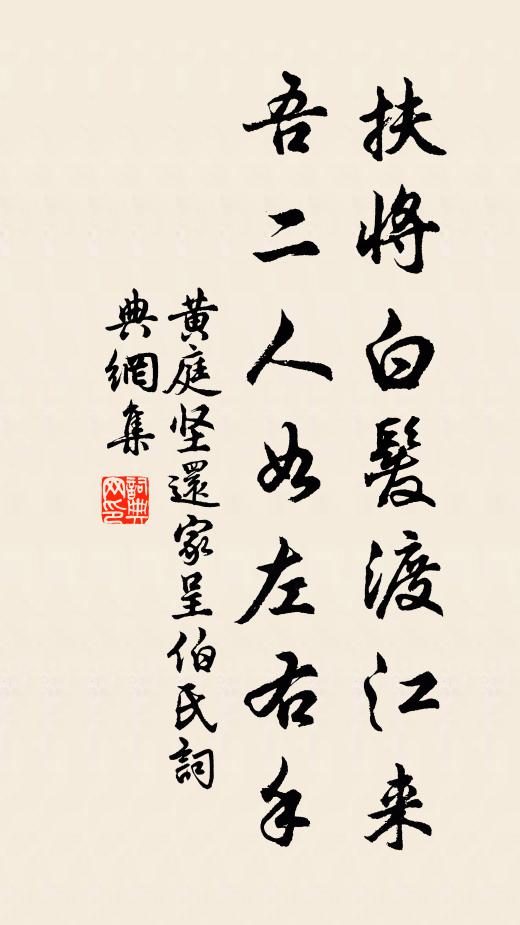 扶將白髮渡江来
吾二人如左右手
黄庭坚還家呈伯氏詞
典網集
詞典网印